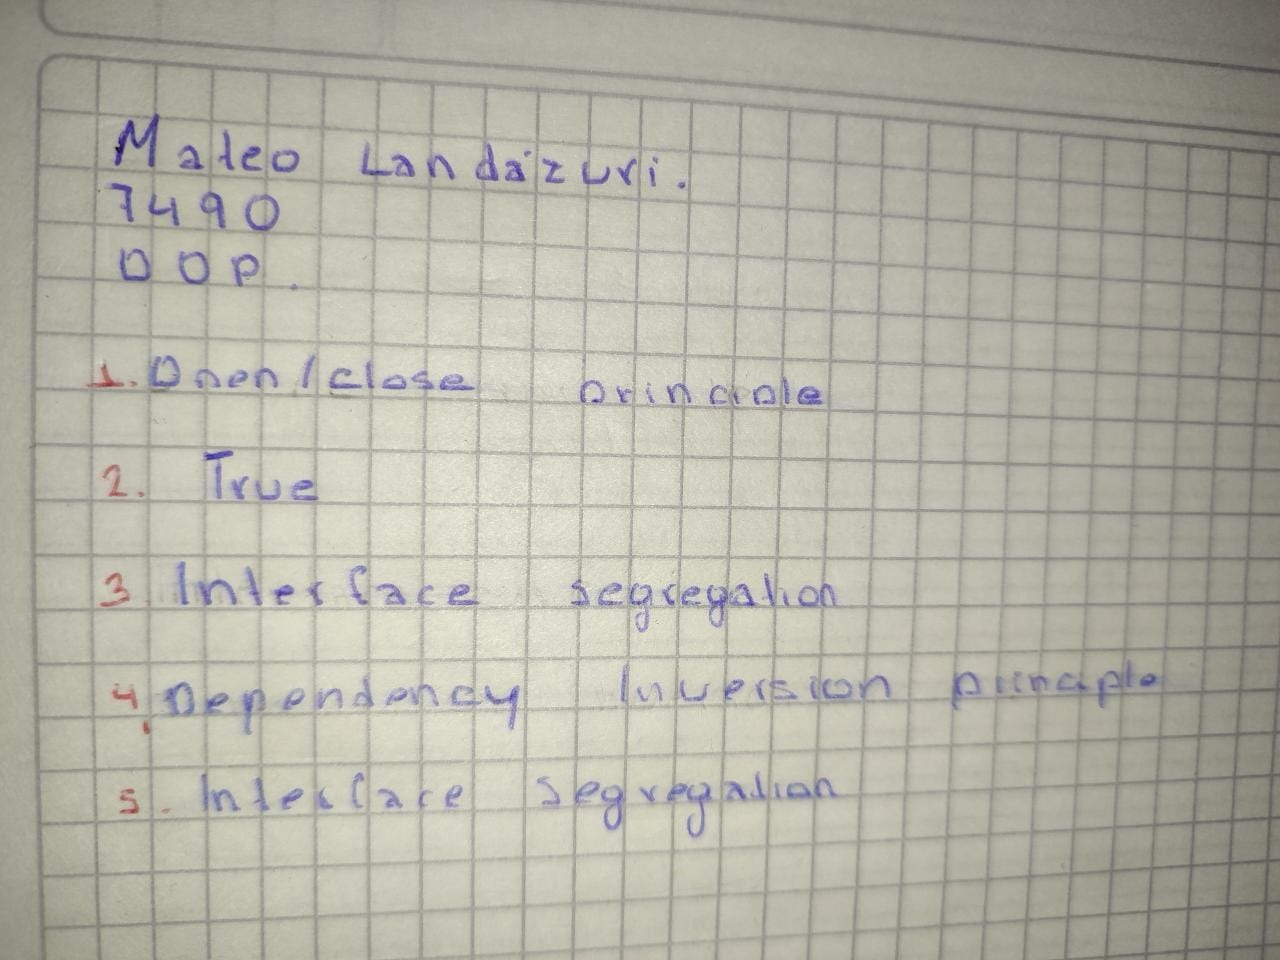 Mateo Landázuri.
7490
OOP.
1. Open/close principle
2. True
3. Interface segregation
4. Dependency Inversion principle
5. Interface segregation